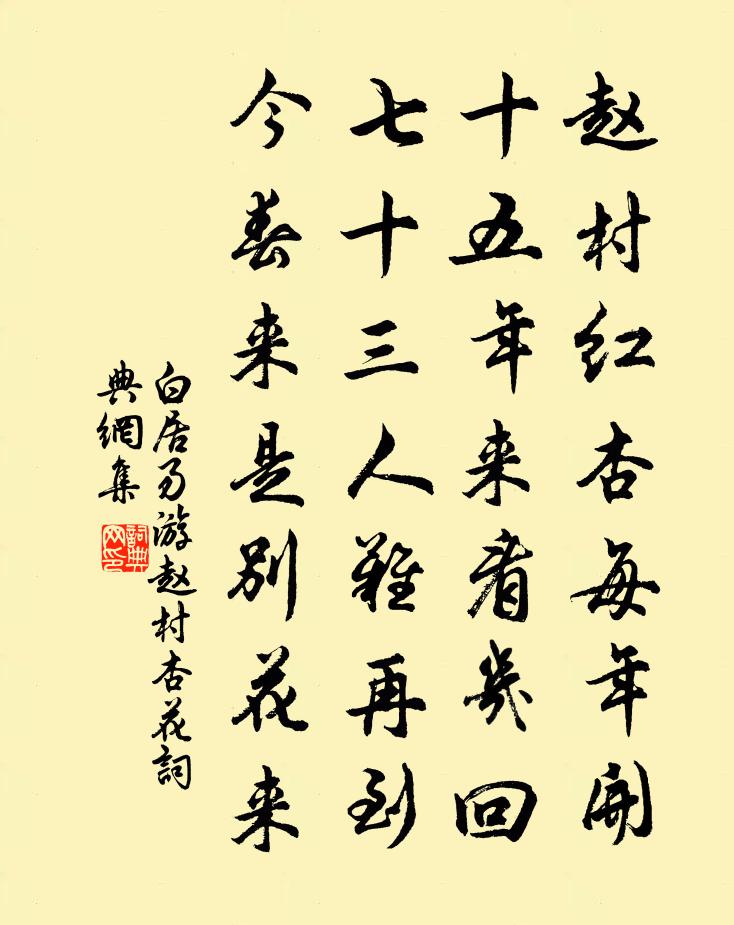 赵村红杏每年開
十五年来看幾回
七十三人難再到
今春来是别花来
白居易游赵村杏花詞
典網集
詞典网印